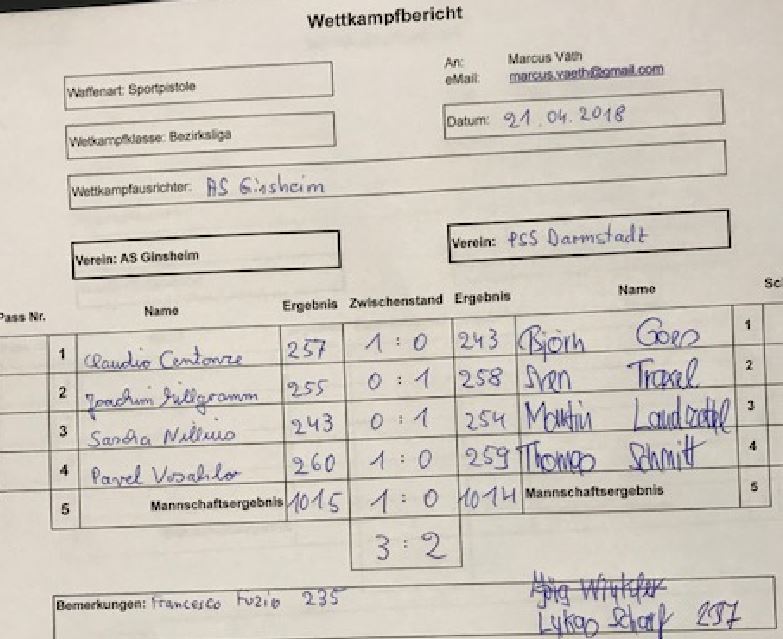 Wettkampfbericht
An: Marcus Väth
eMail: marcus.vaeth@gmail.com
Waffenart: Sportpistole
Datum: 21.04.2018
Wetkampfklasse: Bezirksliga
Wettkampfausrichter: AS Ginsheim
Verein: AS Ginsheim
Verein: PSS Darmstadt
Pass Nr. Name Ergebnis Zwischenstand Ergebnis Name
1 Claudio Centonze 257 1 : 0 243 Björn Goes 1
2 Joachim 255 0 : 1 258 Sven 2
3 243 0 : 1 254 Martin 3
4 Pavel 260 1 : 0 259 Thomas Schmitt 4
5 Mannschaftsergebnis 1015 1 : 0 1014 Mannschaftsergebnis 5
3 : 2
Bemerkungen: Francesco 235
Lukas Scharf